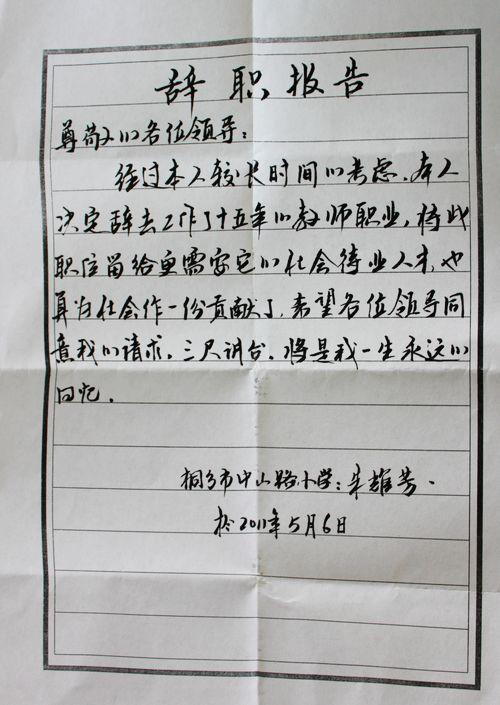 辞职报告
尊敬的各位领导:
经过本人较长时间的考虑,本人
决定辞去工作了十五年的教师职业,将此
职位留给更需要它的社会待业人才,也
算为社会作一份贡献了,希望各位领导同
意我的请求。三尺讲台,将是我一生永远的
回忆。
桐乡市中山路小学:朱雄芳.
于2011年5月6日